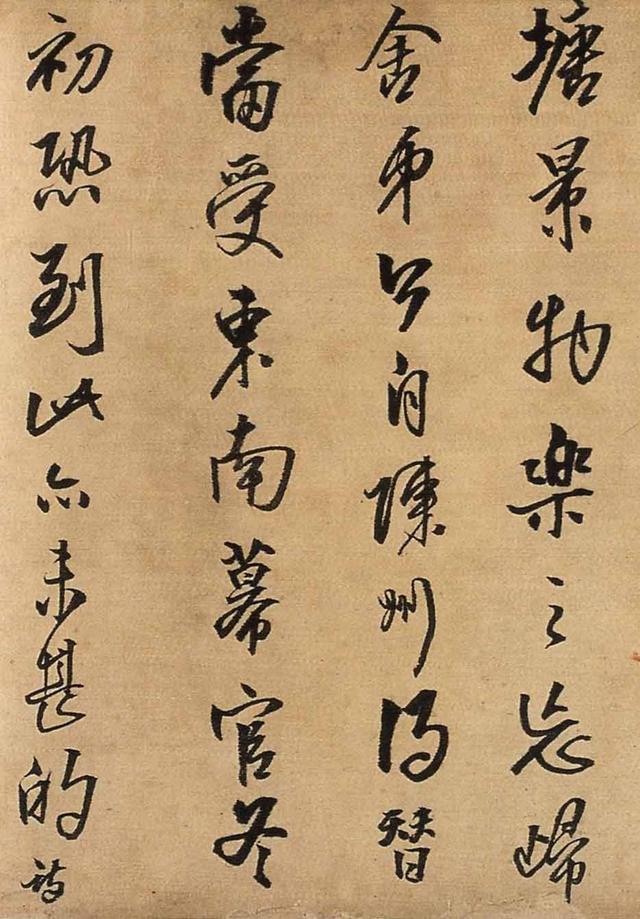 塘景物樂之忘歸
舍弟今自陳州得替
當受東南幕官冬
初恐到此亦未甚的詩